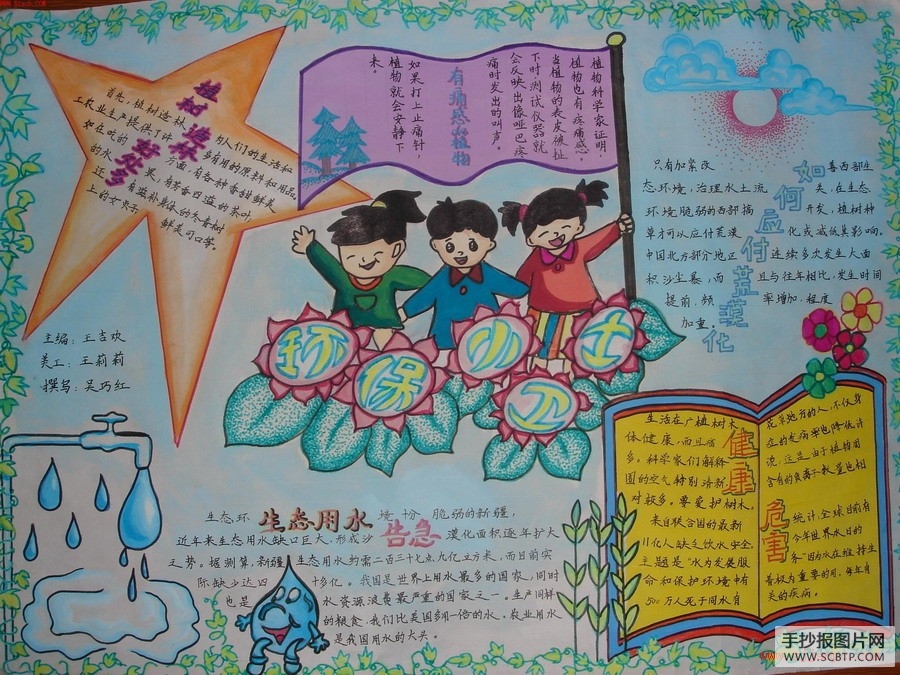 植树造林
好处多
首先，植树造林
与人们的生活和
工农业生产提供了许
多有用的原料和用品
方面，有各种香甜鲜美
的水
果，有芳香四溢的茶叶
还
有滋补身体的冬青树
上的女贞子
鲜美可口等。
主编：王吉欢
美工：王莉莉
撰写：吴巧红
有痛感的植物
植物科学家证明
植物也有疼痛感。
当植物的表皮被扯
下时测试仪器就
会反映出像哑巴疼
痛时发出的叫声。
如果打上止痛针，
植物就会安静下
来。
环保小卫士
如何应付荒漠化
只有加紧改
善西部生
态环境，治理水土流
失，在生态
环境脆弱的西部搞
开发，植树种
草才可以应付荒漠
化或减低其影响。
中国北方部分地区
连续多次发生大面
积沙尘暴，而
且与往年相比，发生时间
提前，频
率增加，程度
加重。
生态用水
告急
生态环
境十分
脆弱的新疆，
近年来生态用水缺口巨大，形成沙
漠化面积逐年扩大
之势。据测算，新疆
生态用水约需二百三十七点九亿立方米，而目前实
际缺少达四
十多亿。我国是世界上用水最多的国家，同时
也是
水资源浪费最严重的国家之一。生产同样
的粮食，我们比美国多用一倍的水。农业用水
是我国用水的大头。
健康
生活在广植树木
花草地方的人，不仅身
体健康，而且癌
症的发病率也降低许
多。科学家们解释
流，这是由于植物周
围的空气特别清新
含有的负离子数量也相
对较多。要爱护树木。
危害
来自联合国的最新
统计，全球目前有
11亿人缺乏饮水安全，
今年世界水日的
主题是“水为发展服
务”因为水在维持生
命和保护环境中有
着极为重要的用，每年有
500万人死于同水有
关的疾病。
手抄报图片网
WWW.SCBTP.COM